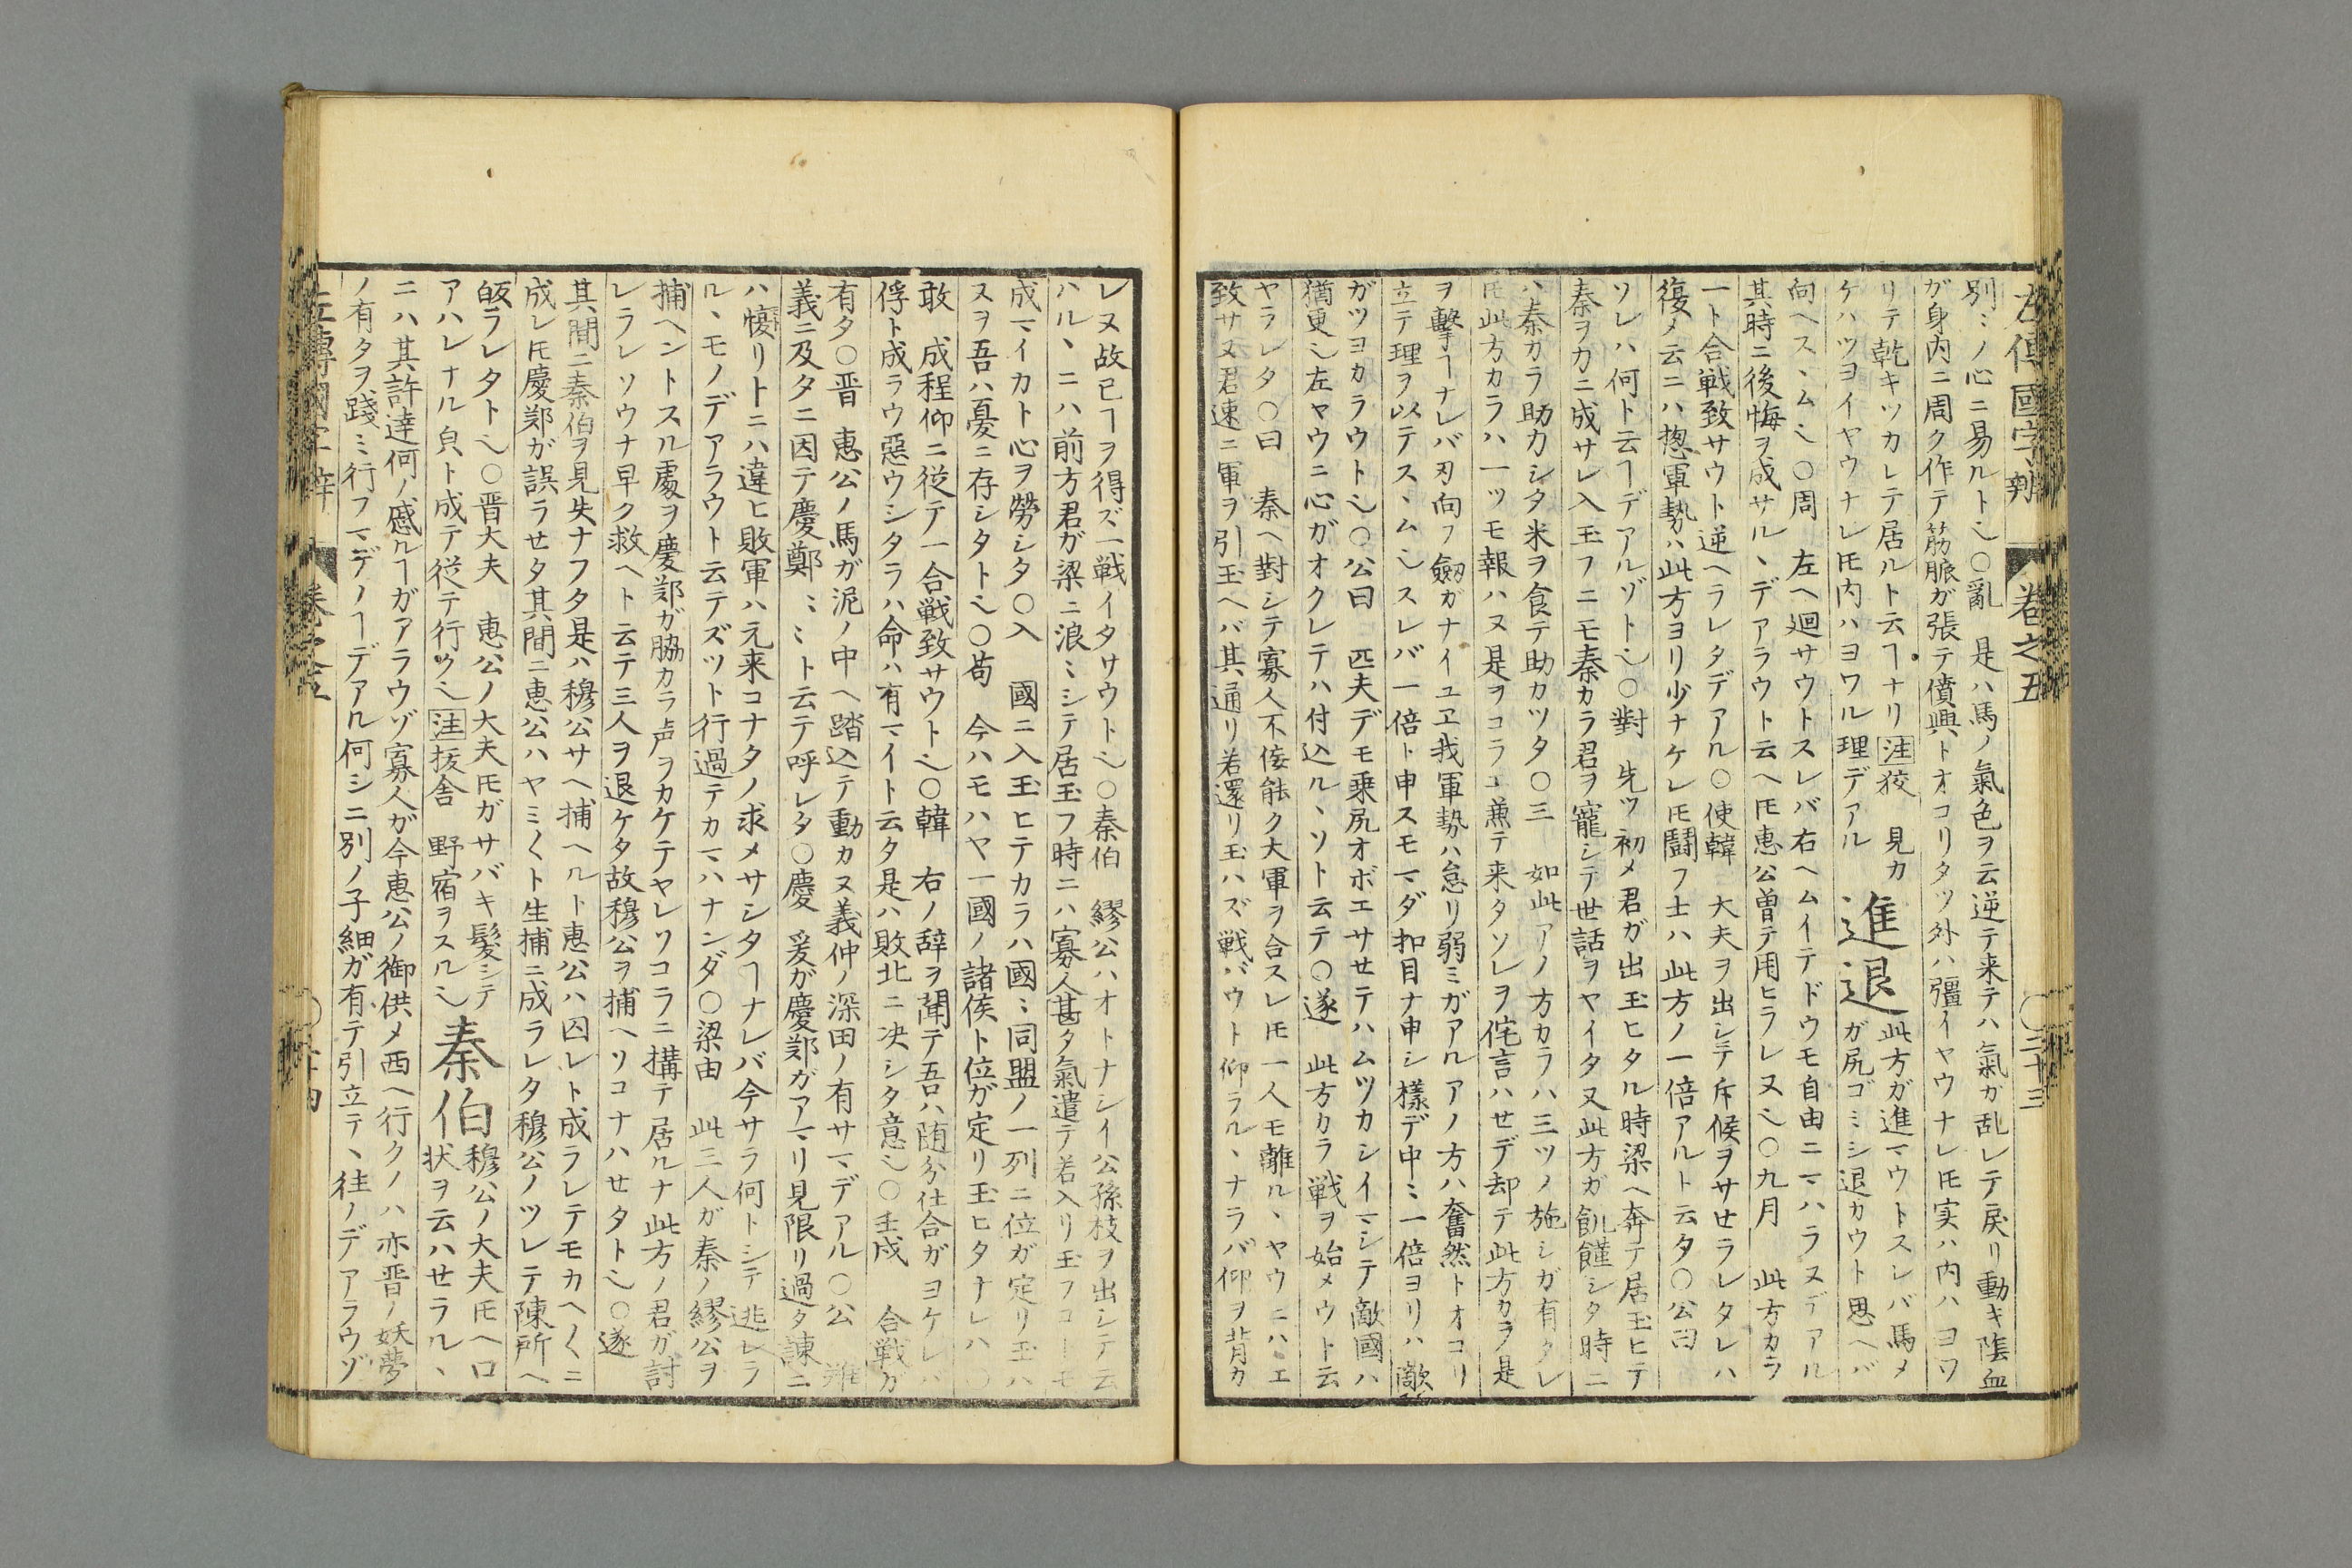 左傳國字辨 卷之五 ○三十三
別ミノ心ニ易ルト乀○亂 是ハ馬ノ氣色ヲ云逆テ来テハ氣ガ乱レテ戻リ動キ陰血
ガ身内ニ周ク作テ筋脈ガ張テ僨興トオコリタツ外ハ彊イヤウナレ𪜈実ハ内ハヨワ
リテ乾キツカレテ居ルト云ヿナリ注狡 見カ
ケハツヨイヤウナレ𪜈内ハヨワル理デアル
進退
此方ガ進マウトスレバ馬メ
ガ尻ゴミシ退カウト思ヘバ
向ヘスヽム乀○周 左ヘ廻サウトスレバ右ヘムイテドウモ自由ニマハラヌデアル
其時ニ後悔ヲ成サルヽデアラウト云ヘ𪜈惠公曽テ用ヒラレヌ乀○九月 此方カラ
一ト合戦致サウト逆ヘラレタデアル○使韓 大夫ヲ出シテ斥候ヲサセラレタレハ
復メ云ニハ揔軍勢ハ此方ヨリ少ナケレ𪜈闘フ士ハ此方ノ一倍アルト云タ○公曰
ソレハ何ト云ヿデアルゾト乀○對 先ツ初メ君ガ出玉ヒタル時梁ヘ奔テ居玉ヒテ
秦ヲカニ成サレ入玉フニモ秦カラ君ヲ寵シテ世話ヲヤイタ又此方ガ飢饉シタ時ニ
ハ秦カラ助力シタ米ヲ食テ助カツタ○三 如此アノ方カラハ三ツノ施シガ有タレ
𪜈此方カラハ一ツモ報ハヌ是ヲコラヱ兼テ来タソレヲ侘言ハセデ却テ此方カラ是
ヲ擊ヿナレバ刃向フ劔ガナイユヱ我軍勢ハ怠リ弱ミガアルアノ方ハ奮然トオコリ
立テ理ヲ以テスヽム乀スレバ一倍ト申スモマダ扣目ナ申シ様デ中ミ一倍ヨリハ敵
ガツヨカラウト乀○公曰 匹夫デモ乗尻オボエサセテハムツカシイマシテ敵國ハ
猶更乀左ヤウニ心ガオクレテハ付込ルヽソト云テ○遂 此方カラ戦ヲ始メウト云
ヤラレタ○曰 秦ヘ對シテ寡人不佞能ク大軍ヲ合スレ𪜈一人モ離ルヽヤウニハヱ
致サヌ君速ニ軍ヲ引玉ヘバ其通リ若還リ玉ハズ戦バウト仰ラルヽナラバ仰ヲ背カ
レヌ故已ヿヲ得ズ一戦イタサウト乀○秦伯 繆公ハオトナシイ公孫枝ヲ出シテ云
ハルヽニハ前方君ガ梁ニ浪ミシテ居玉フ時ニハ寡人甚タ氣遣テ若入リ玉フコーモ
成マイカト心ヲ勞シタ○入 國ニ入玉ヒテカラハ國ミ同盟ノ一列ニ位ガ定リ玉ハ
ヌヲ吾ハ憂ニ存シタト乀○苟 今ハモハヤ一國ノ諸侯ト位ガ定リ玉ヒタナレハ
敢 成程仰ニ從テ一合戦致サウト乀○韓 右ノ辞ヲ聞テ吾ハ随分仕合ガヨケレバ
俘ト成ラウ惡ウシタラハ命ハ有マイト云タ是ハ敗北ニ决シタ意乀○壬戌 合戦ガ
有タ○晋 惠公ノ馬ガ泥ノ中ヘ踏込テ動カヌ義仲ノ深田ノ有サマデアル○公
義ニ及タニ因テ慶鄭ミミト云テ呼レタ○慶 爰ガ慶郑ガアマリ見限リ過タ諌ニ
ハ愎リトニハ違ヒ敗軍ハ元来コナタノ求メサシタヿナレバ今サラ何トシテ逃レラ
ルヽモノデアラウト云テズツト行過テカマハナンダ○梁由 此三人ガ秦ノ繆公ヲ
捕ヘントスル處ヲ慶郑ガ脇カラ声ヲカケテヤレソコラニ構テ居ルナ此方ノ君ガ討
レラレソウナ早ク救ヘト云テ三人ヲ退ケタ故穆公ヲ捕ヘソコナハセタト乀○遂
其間ニ秦伯ヲ見失ナフタ是ハ穆公サヘ捕ヘルト惠公ハ囚レト成ラレテモカヘ〱ニ
成レ𪜈慶郑ガ誤ラセタ其間ニ惠公ハヤミ〱ト生捕ニ成ラレタ穆公ノツレテ陳所ヘ
皈ラレタト乀○晋大夫 惠公ノ大夫𪜈ガサバキ髪シテ
アハレナル㒵ト成テ從テ行ク乀注抜舎 野宿ヲスル乀
秦伯
穆公ノ大夫𪜈ヘ口
状ヲ云ハセラルヽ
ニハ其許達何ノ慼ルヿガアラウゾ寡人ガ今惠公ノ御供メ西ヘ行クノハ亦晋ノ妖夢
ノ有タヲ踐ミ行フマデノヿデアル何シニ別ノ子細ガ有テ引立テヽ往ノデアラウゾ